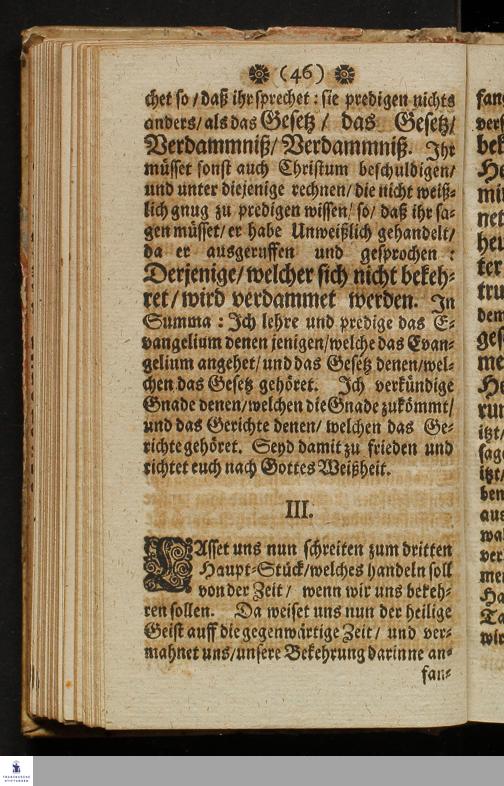 (46)
chet so / daß ihr sprechet : sie predigen nichts
anders / als das Gesetz / das Gesetz/
Verdammniß/ Verdammniß. Ihr
müsset sonst auch Christum beschuldigen/
und unter diejenige rechnen/ die nicht weiß-
lich gnug zu predigen wissen/ so/ daß ihr sa-
gen müsset/ er habe Unweißlich gehandelt/
da er ausgeruffen und gesprochen :
Derjenige/ welcher sich nicht bekeh-
ret/ wird verdammet werden. In
Summa : Ich lehre und predige das E-
vangelium denen jenigen/welche das Evan-
gelium angehet/ und das Gesetz denen/wel-
chen das Gesetz gehöret. Ich verkündige
Gnade denen/welchen die Gnade zukömmt/
und das Gerichte denen/ welchen das Ge-
richte gehöret. Seyd damit zu frieden und
richtet euch nach Gottes Weißheit.
III.
LAsset uns nun schreiten zum dritten
Haupt-Stück/welches handeln soll
von der Zeit / wenn wir uns bekeh-
ren sollen. Da weiset uns nun der heilige
Geist auff die gegenwärtige Zeit / und ver-
mahnet uns/unsere Bekehrung darinne an-
fan-
FRANCKESCHE
STIFTUNGEN